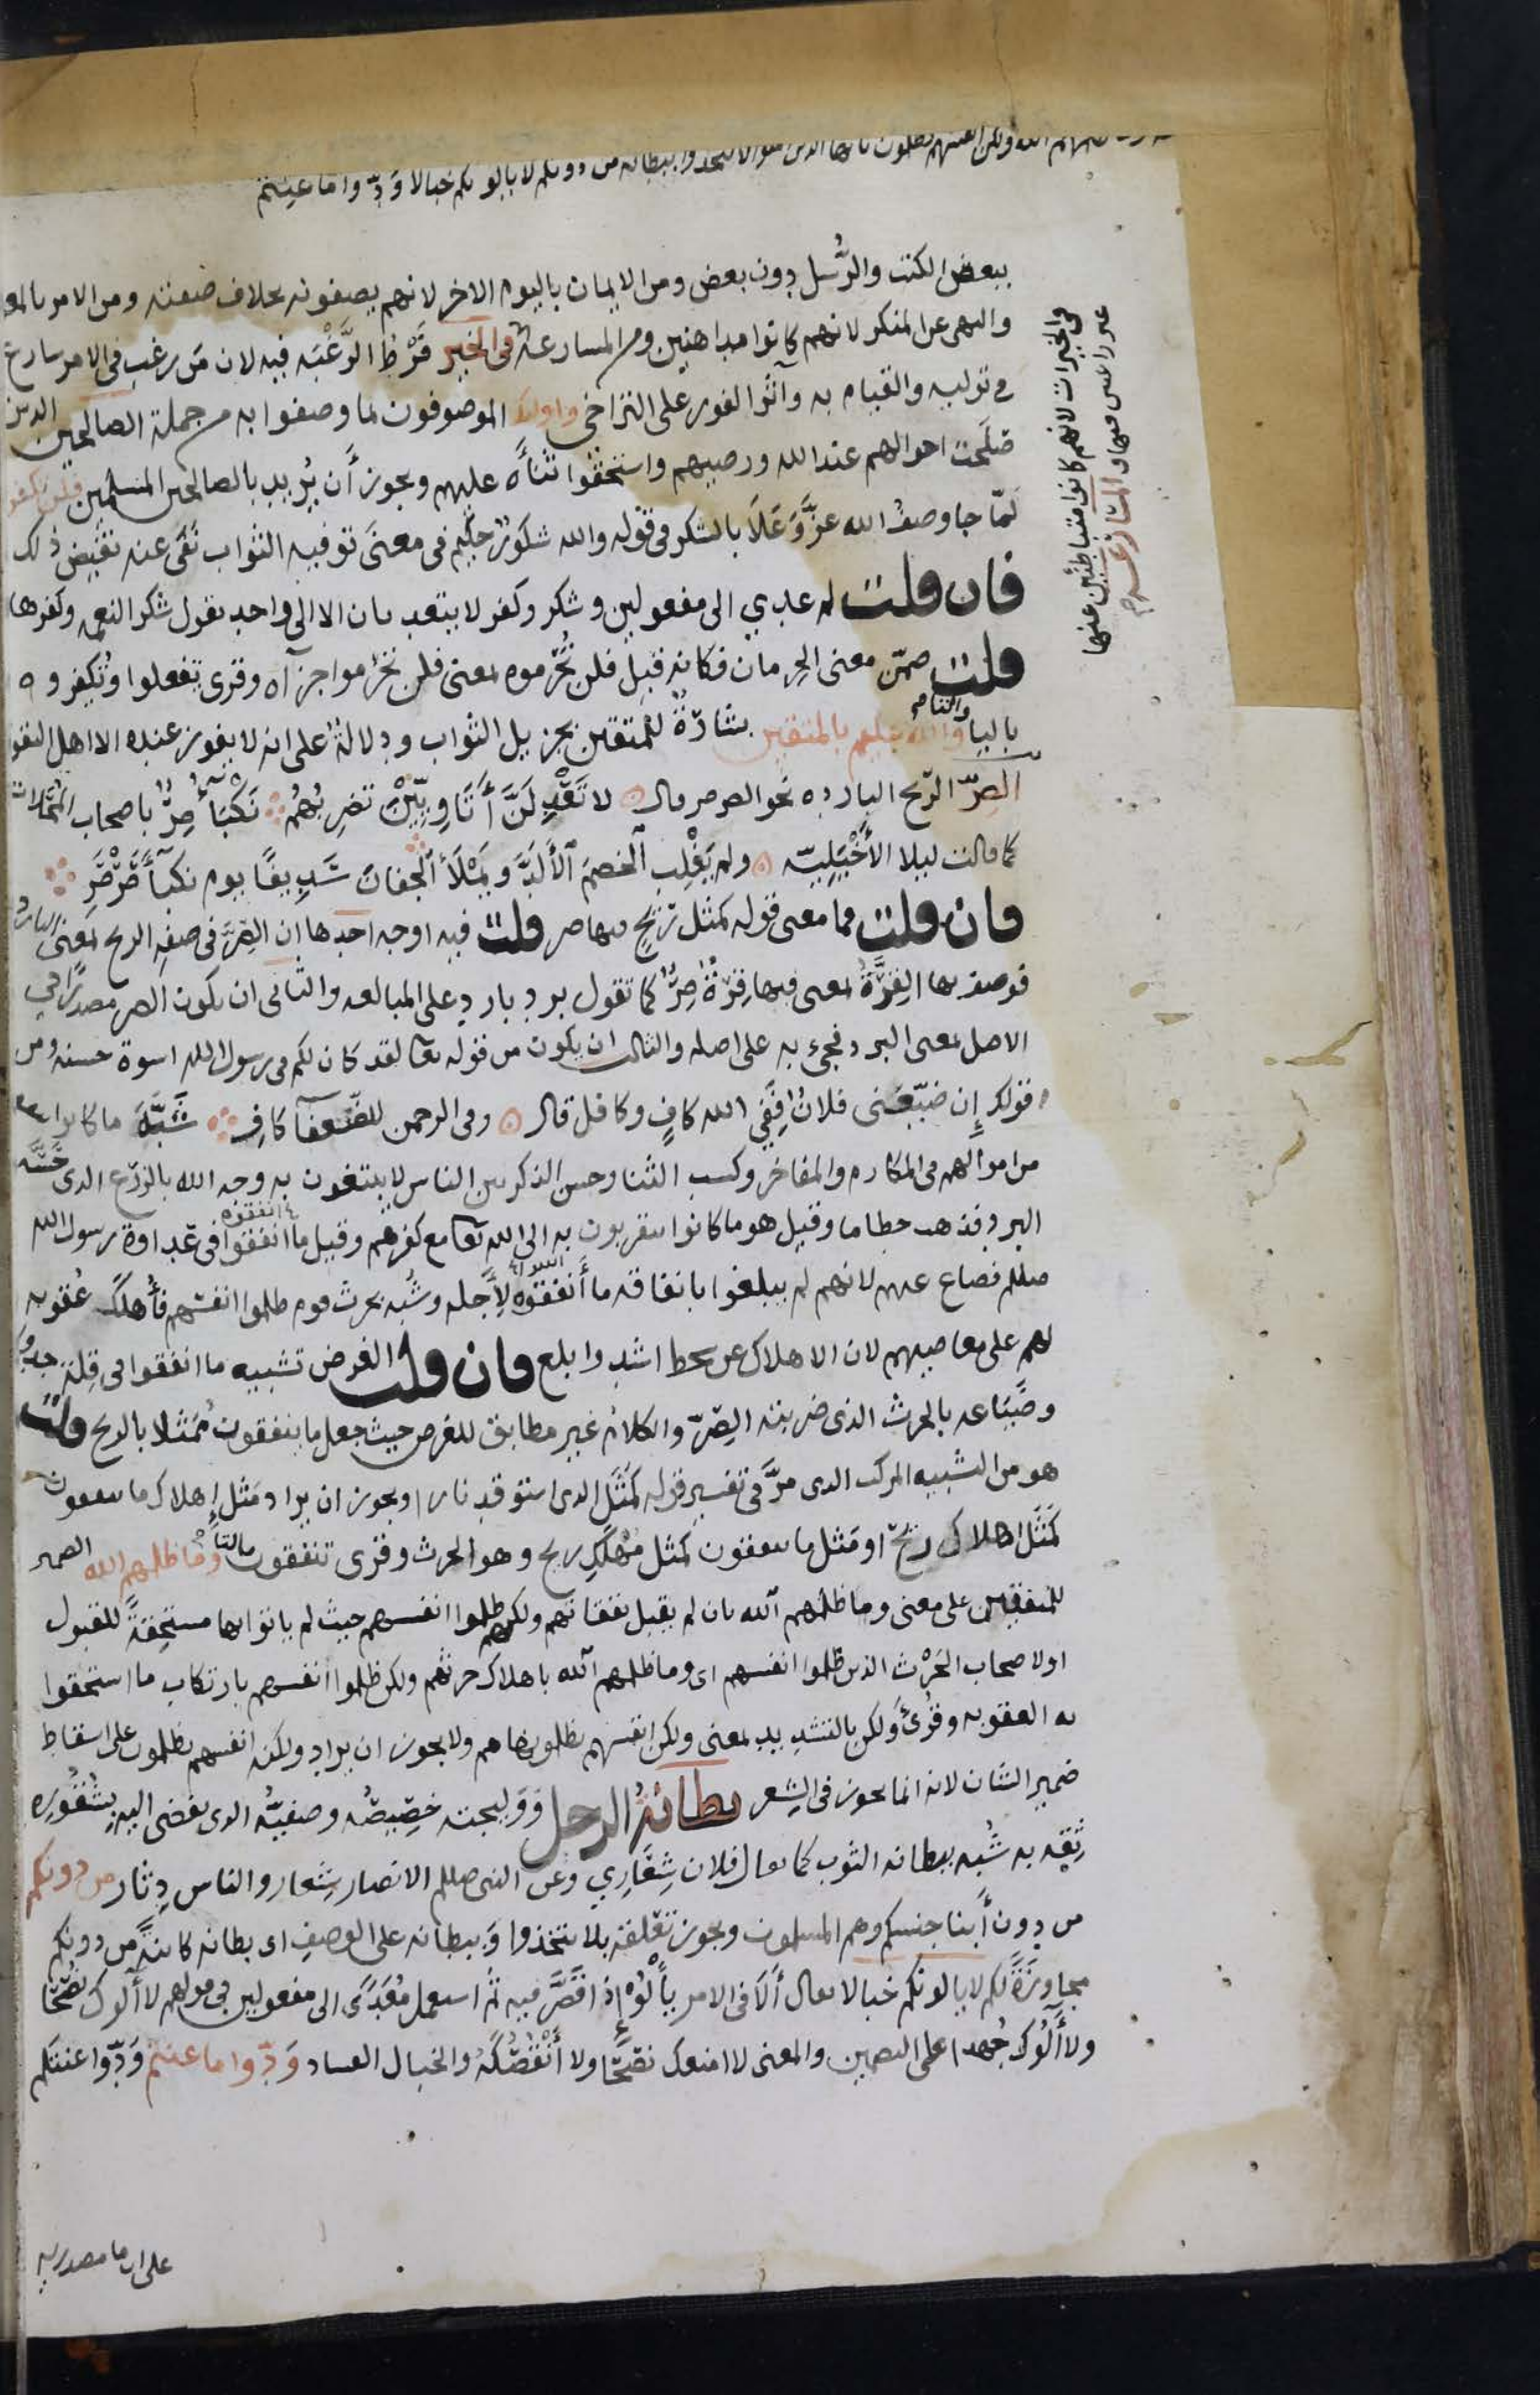 ولكن انفسهم يظلمون يا ايها الذين امنوا لا تتخذوا بطانة من دونكم لا يالونكم خبالا وَدّوا ما عنتم
ببعض الكتب والرُّسل دون بعض ومن الايمان باليوم الاخر لانهم يصفونه بخلاف صفته ومن الامر بالمعر
والنهي عن المنكر لانهم كانوا مداهنين ومن المسارعة في الخير فَرْط الرَّغْبَة فيه لان مَن رغب في الامر سارع
في توليه والقيام به وآثر الفور على التراخي واولئك الموصوفون بما وصفوا به من جملة الصالحين الذين
صَلَحت احوالهم عند الله ورضيهم واستحقّوا ثناءه عليهم ويجوز أن يُريد بالصالحين المسلمين فلن تكفرو
لَمّا جا وصفُ الله عزّ وَعَلَا بالشكر في قوله والله شكورٌ حليم في معنى توفية الثواب نَفَى عنه نقيض ذلك
فان قلت لم عدي الى مفعولين وشكر وكفر لا يتعديان الا الى واحد تقول شكر النعمة وكفرها
قلت ضمّن معنى الحِرمان فكانه قيل فلن تُحْرموه بمعنى فلن تحْرموا جزآه وقرى يفعلوا ويُكفروه
باليا والتا والله عليم بالمتقين بشارةٌ للمتقين بجزيل الثواب ودلالةٌ على انه لا يفوز عنده الا اهل التقو
الصِرّ الرّيح الباردة نحو الصرصر قال لا تَعْدِلَنَّ أَتَاوِيِّيْنَ تضرِبُهُمْ نَكْبَآءُ صِرٌّ باصحاب المُحَلّات
كما قالت ليلا الأَخْيَلِيّة ولم يَغْلِب الخصمَ الأَلَدَّ ويَمْلَأ الجفانَ سَدِيفًا يوم نكبآءَ صَرْصَرِ
فان قلت فما معنى قوله كمثل ريحٍ فيها صر قلت فيه اوجه احدها ان الصِرّ في صفة الريح بمعنى البارد
فوصف بها القِرَّةُ بمعنى فيها قِرّةٌ صِرٌّ كما تقول برد بارد على المبالغه والثاني ان يكون الصر مصدرًا في
الاصل بمعنى البرد فجيء به على اصله والثالث ان يكون من قوله تعا لقد كان لكم في رسول الله اسوة حسنة ومن
قولك إن ضيّعَنى فلانٌ فَفِي الله كافٍ وكافل قال وفي الرحمن للضعفآ كافِ شَبَّهَ ما كانوا
من اموالهم في المكارم والمفاخر وكسب الثنا وحسن الذكر بين الناس لا يبتغون به وجه الله بالزرع الذي حَسَّه
البرد فذهب حطاما وقيل هو ما كانوا يتقربون به الى الله تعا مع كفرهم وقيل ما انفقوا في عداوة رسول الله
صللم فضاع عنهم لانهم لم يبلغوا بانفاقه ما أَنفقوه لِأَجله وشُبه بحرث قوم ظلموا انفسهم فأُهلك عقوبة
لهم على معاصيهم لان الاهلاك عن سخط اشد وابلغ فان قلت الغرض تشبيه ما انفقوا في قِلة جدوا
وضَيَاعه بالحرث الذي ضربته الصِرّ والكلام غير مطابق للغرض حيث جعل ما ينفقون مُمَثلا بالريح قلت
هو من التشبيه المركب الذي مرَّ في تفسير قوله كَمَثَل الذي استوقد نارا ويجوز ان يراد مَثَل إهلاك ما ينفقون
كَمَثَل اهلاك ريح او مَثل ما ينفقون كمثل مُهْلَكِ ريح وهو الحرث وقرى تنفقون بالتا وما ظلمهم الله الضمير
للمنفقين على معنى وما ظلمهم الله بان لم يقبل نفقاتهم ولكنهم ظلموا انفسهم حيث لم ياتوا بها مستحِقةً للقبول
او لاصحاب الحَرْث الذين ظلموا انفسهم اى وما ظلمهم الله باهلاك حرثهم ولكن ظلموا انفسهم بارتكاب ما استحقوا
به العقوبة وقُرئ ولكن بالتشديد بمعنى ولكن انفسهم يظلمونها هم ولا يجوز ان يراد ولكنه انفسهم يظلمون على اسقاط
ضمير الشان لانه انما يجوز في الشِعر بطانةُ الرجل وَوَليجته خصّيصُه وصفيّه الذي يفضى اليه بِشُقُورِه
ثِقةً به شُبه ببطانة الثوب كما يقال فلان شِعَارِي وعن النبي صللم الانصار شِعار والناس دِثار من دونكم
من دون أبنا جنسكم وهم المسلمون ويجوز تعْلقه بلا تتخذوا وَببطانة على الوصف اى بطانة كائنةً من دونكم
مجاوِزةً لكم لا يالونكم خبالا يقال أَلَا في الامر يأْلُوا إذا قَصَّر فيه ثم استعمل مُعَدًّى الى مفعولين في قولهم لا آلوك نصْحًا
ولا آلُوك جُهدا على التضمين والمعنى لا امنعك نصْحًا ولا أَنْقُصُكَهُ والخبال الفساد وَدّوا ما عنتم وَدّوا عنتكم
على ان ما مصدرية
في الخيرات لانهم كانوا متباطئين عنها
غير راغبين فيها والمسارعة